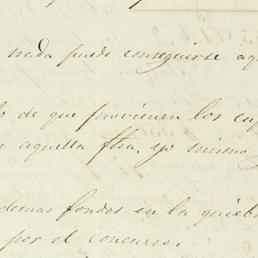 nada puede conseguirse aq
o de que provienen los cup
n aquella fha, yo mismo,
demas fondos en la quieb
por el concurso.